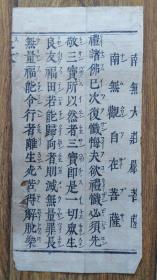 南無大莊嚴菩薩
南無觀自在菩薩
禮諸佛已次復懺悔夫欲禮懺必須先
敬三寶所以然者三寶即是一切衆生
良友福田若能歸向者則滅無量罪長
無量福能令行者離生死苦得解脫樂